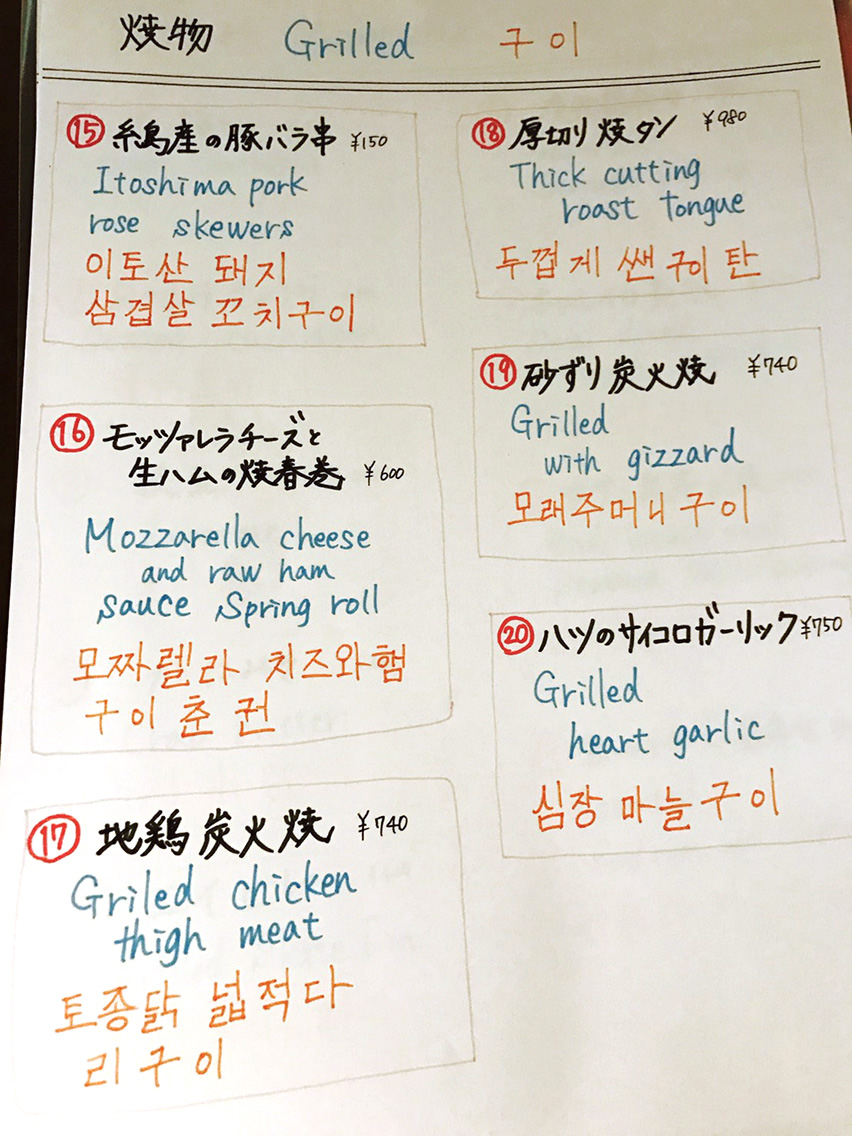 焼物 Grilled 구이
⑮ 糸島産の豚バラ串 ¥150
Itoshima pork
rose skewers
이토산 돼지
삼겹살 꼬치구이
⑯ モッツァレラチーズと
生ハムの焼春巻 ¥600
Mozzarella cheese
and raw ham
sauce Spring roll
모짜렐라 치즈와햄
구이 춘권
⑰ 地鶏炭火焼 ¥740
Griled chicken
thigh meat
토종닭 넓적다
리구이
⑱ 厚切り焼タン ¥980
Thick cutting
roast tongue
두껍게 쌘 구이 탄
⑲ 砂ずり炭火焼 ¥740
Grilled
with gizzard
모래주머니구이
⑳ ハツのサイコロガーリック ¥750
Grilled
heart garlic
심장 마늘구이